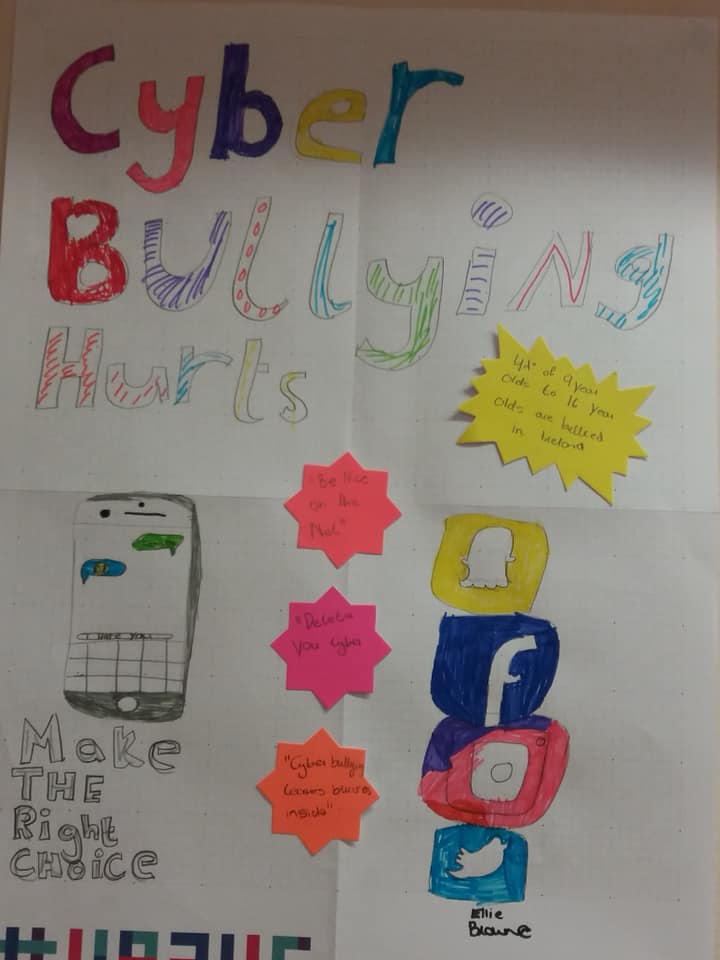 Cyber
Bullying
Hurts
of 9 year
Olds to 16 year
Olds are bullied
in Ireland
"Be Nice
on the
Net"
"Delete
you Cyber
I HATE YOU
"Cyber bullying
leaves bruises
inside"
Make
THE
Right
CHOICE
Ellie
Browne